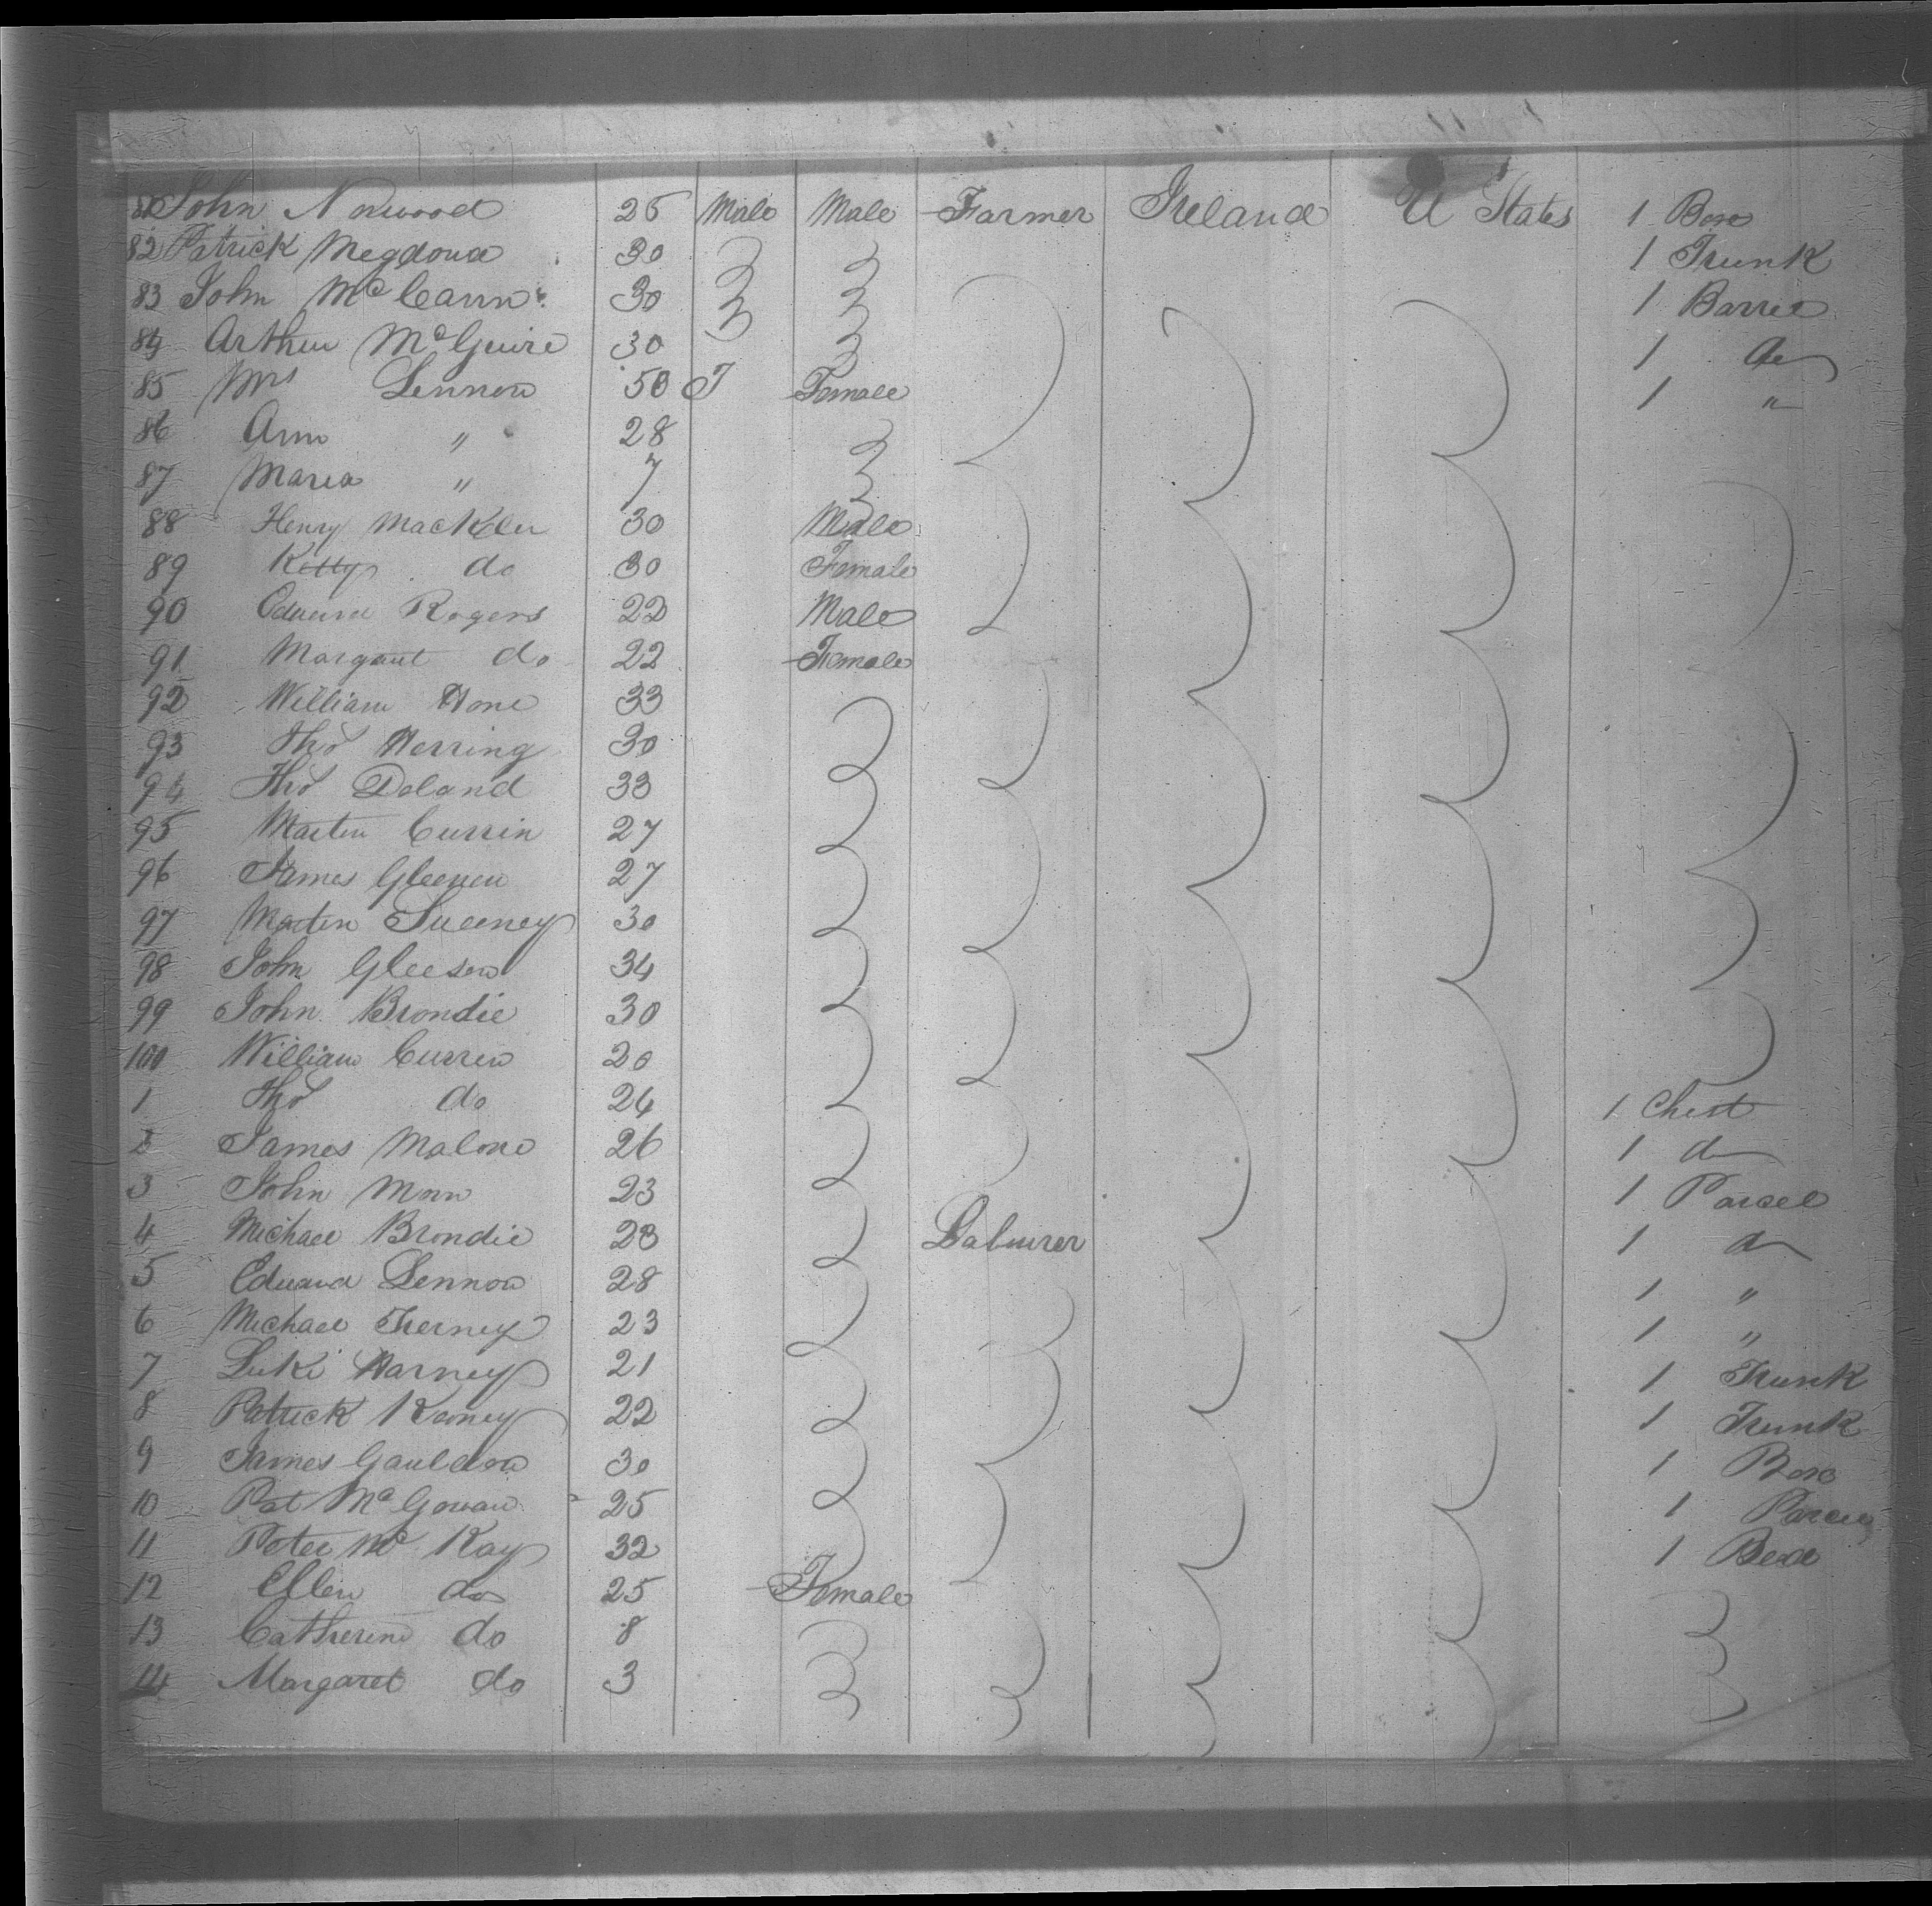 81 John Norwood 25 Male Male Farmer Ireland U States 1 Box
82 Patrick Megdoua 30 1 Trunk
83 John McCann 30 1 Barrel
84 Arthur McGuire 30 1 do
85 Mrs Lennon 50 F Female 1 "
86 Ann " 28
87 Maria " 7
88 Henry Mackler 30 Male
89 Kitty do 30 Female
90 Edward Rogers 22 Male
91 Margaret do 22 Female
92 William Hone 33
93 Thos Herring 30
94 Thos Doland 33
95 Martin Currin 27
96 James 27
97 Martin Sweeney 30
98 John Gleeson 34
99 John Brondie 30
100 William Curren 20
1 Thos do 24 1 Chest
2 James Malone 26 1 do
3 John Morn 23 1 Parcel
4 Michael Brondie 28 Labourer 1 do
5 Edward Lennon 28 1 "
6 Michael Tierney 23 1 "
7 Luke Harney 21 1 Trunk
8 Patrick Kearney 22 1 Trunk
9 James Gauldon 30 1 Box
10 Pat McGowan 25 1 Parcel
11 Peter Mc Kay 32 1 Bed
12 Ellen do 25 Female
13 Catherine do 8
14 Margaret do 3